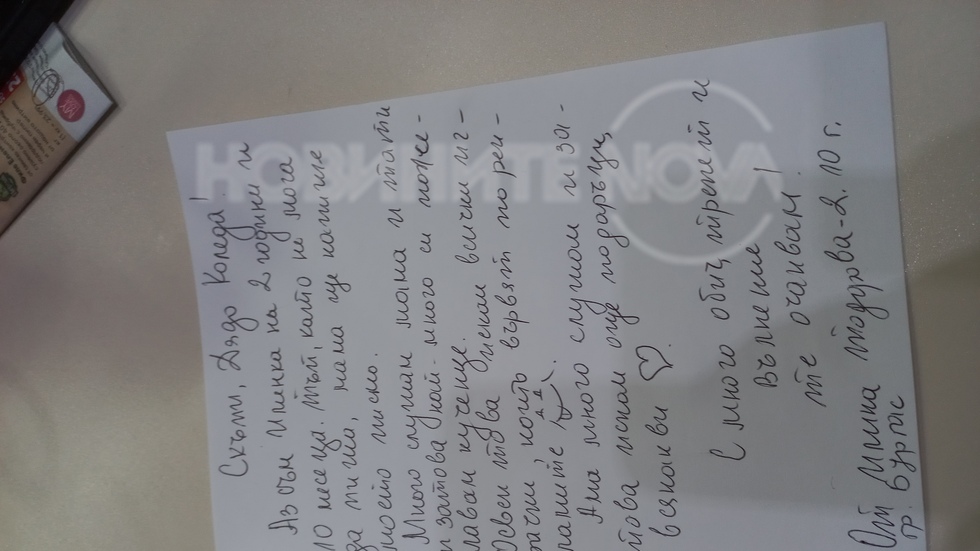 Скъпи, Дядо Коледа!
Аз съм Илинка на 2 години и
10 месеца. Тъй, като не мога
да пиша, мама ще напише
моето писмо.
Много слушам мама и тати
и затова най-много си поже-
лавам кученце.
Освен това искам всички иг-
рачки, които вървят по рек-
ламите
Ама много слушам и за-
това искам още подаръци,
всякакви ♡.
С много обич, трепет и
вълнение
те очаквам!
От Илина Тодорова-2.10 г.
гр. Бургас
НОВИНИТЕ NOVA
MY